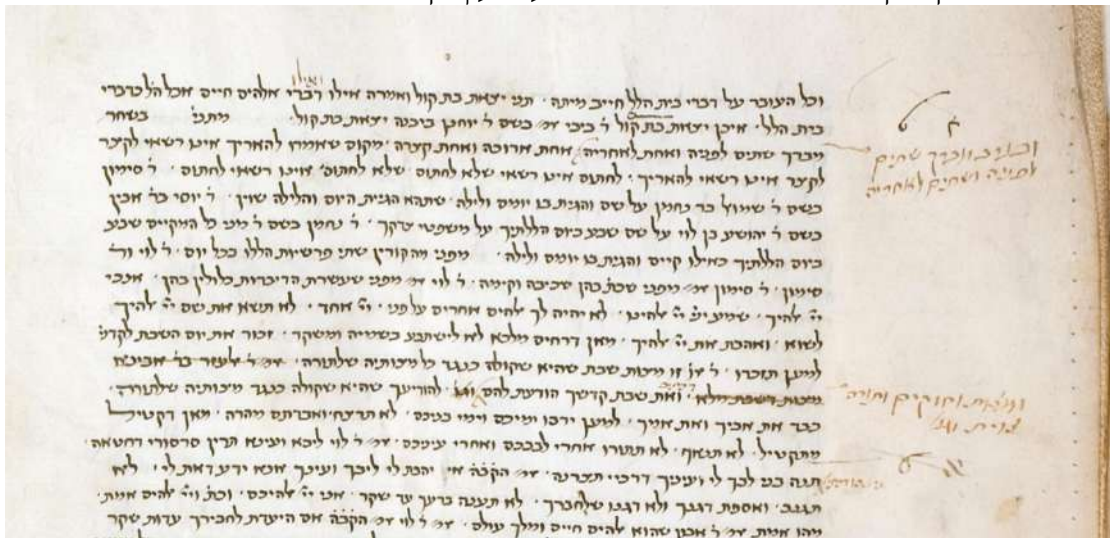 ואילו
וכל העובר על דברי בית הלל חייב מיתה · תני יצאת בת קול ואמרה אילו דברי אלהים חיים אבל הל' כדברי
בית הלל · איכן יצאת בת קול ר' ביבי אמ' בשם ר' יוחנן ביבנה יצאת בת קול · מתני' בשחר
מברך שתים לפניה ואחת לאחריה אחת ארוכה ואחת קצרה · מקום שאמרו להאריך אינו רשאי לקצר
לקצר אינו רשאי להאריך · לחתום אינו רשאי שלא לחתום · שלא לחתום אינו רשאי לחתום · ר' סימון
בשם ר' שמואל בר נחמן על שם והגית בו יומם ולילה · שתהא הגיית היום והלילה שוין · ר' יוסי בר' אבין
בשם ר' יהושע בן לוי על שם שבע ביום הללתיך על משפטי צדקך · ר' נחמן בשם ר' מני כל המקיים שבע
ביום הללתיך כאילו קיים והגית בו יומם ולילה · מפני מה קורין שתי פרשיות הללו בכל יום · ר' לוי ור'
סימון · ר' סימון אמ' מפני שכת' בהן שכיבה וקימה · ר' לוי אמ' מפני שעשרת הדיברות כלולין בהן · אנכי
יי' אלהיך · שמע יש' יי' אלהינו · לא יהיה לך אלהים אחרים על פני · יי' אחד · לא תשא את שם יי' אלהיך
לשוא · ואהבת את יי' אלהיך · מאן דרחים מלכא לא לישתבע בשמיה ומשקר · זכור את יום השבת לקדשו
למען תזכרו · ר' או' זו מצות שבת שהיא שקולה כנגד כל מצותיה שלתורה · אמ' ר' אלעזר בר' אבינא
ואת שבת קדשך הודעת להם וגו' להודיעך שהיא שקולה כנגד מצותיה שלתורה ·
כבד את אביך ואת אמך · למען ירבו ימיכם וימי בניכם · לא תרצח ואבדתם מהרה · מאן דקטיל
מתקטיל · לא תנאף · לא תתורו אחרי לבבכם ואחרי עיניכם · אמ' ר' לוי ליבא ועינא תרין סרסורי דחטאה ·
תנה בני לבך לי ועיניך דרכי תצרנה · אמ' הקב'ה אי יהבת לי ליבך ועיניך אנא ידע דאת לי · לא
תגנב · ואספת דגנך ולא דגנו שלחברך · לא תענה ברעך עד שקר · אני יי' אלהיכם · וכת' ויי' אלהים אמת ·
מהו אמת אמ' ר' אבון שהוא אלהים חיים ומלך עולם · אמ' ר' לוי אמ' הקב'ה אם היעדת לחבירך עדות שקר
ובערב מברך שתים
לפניה ושתים לאחריה
ומצות וחוקים ותורה
צוית וגו'